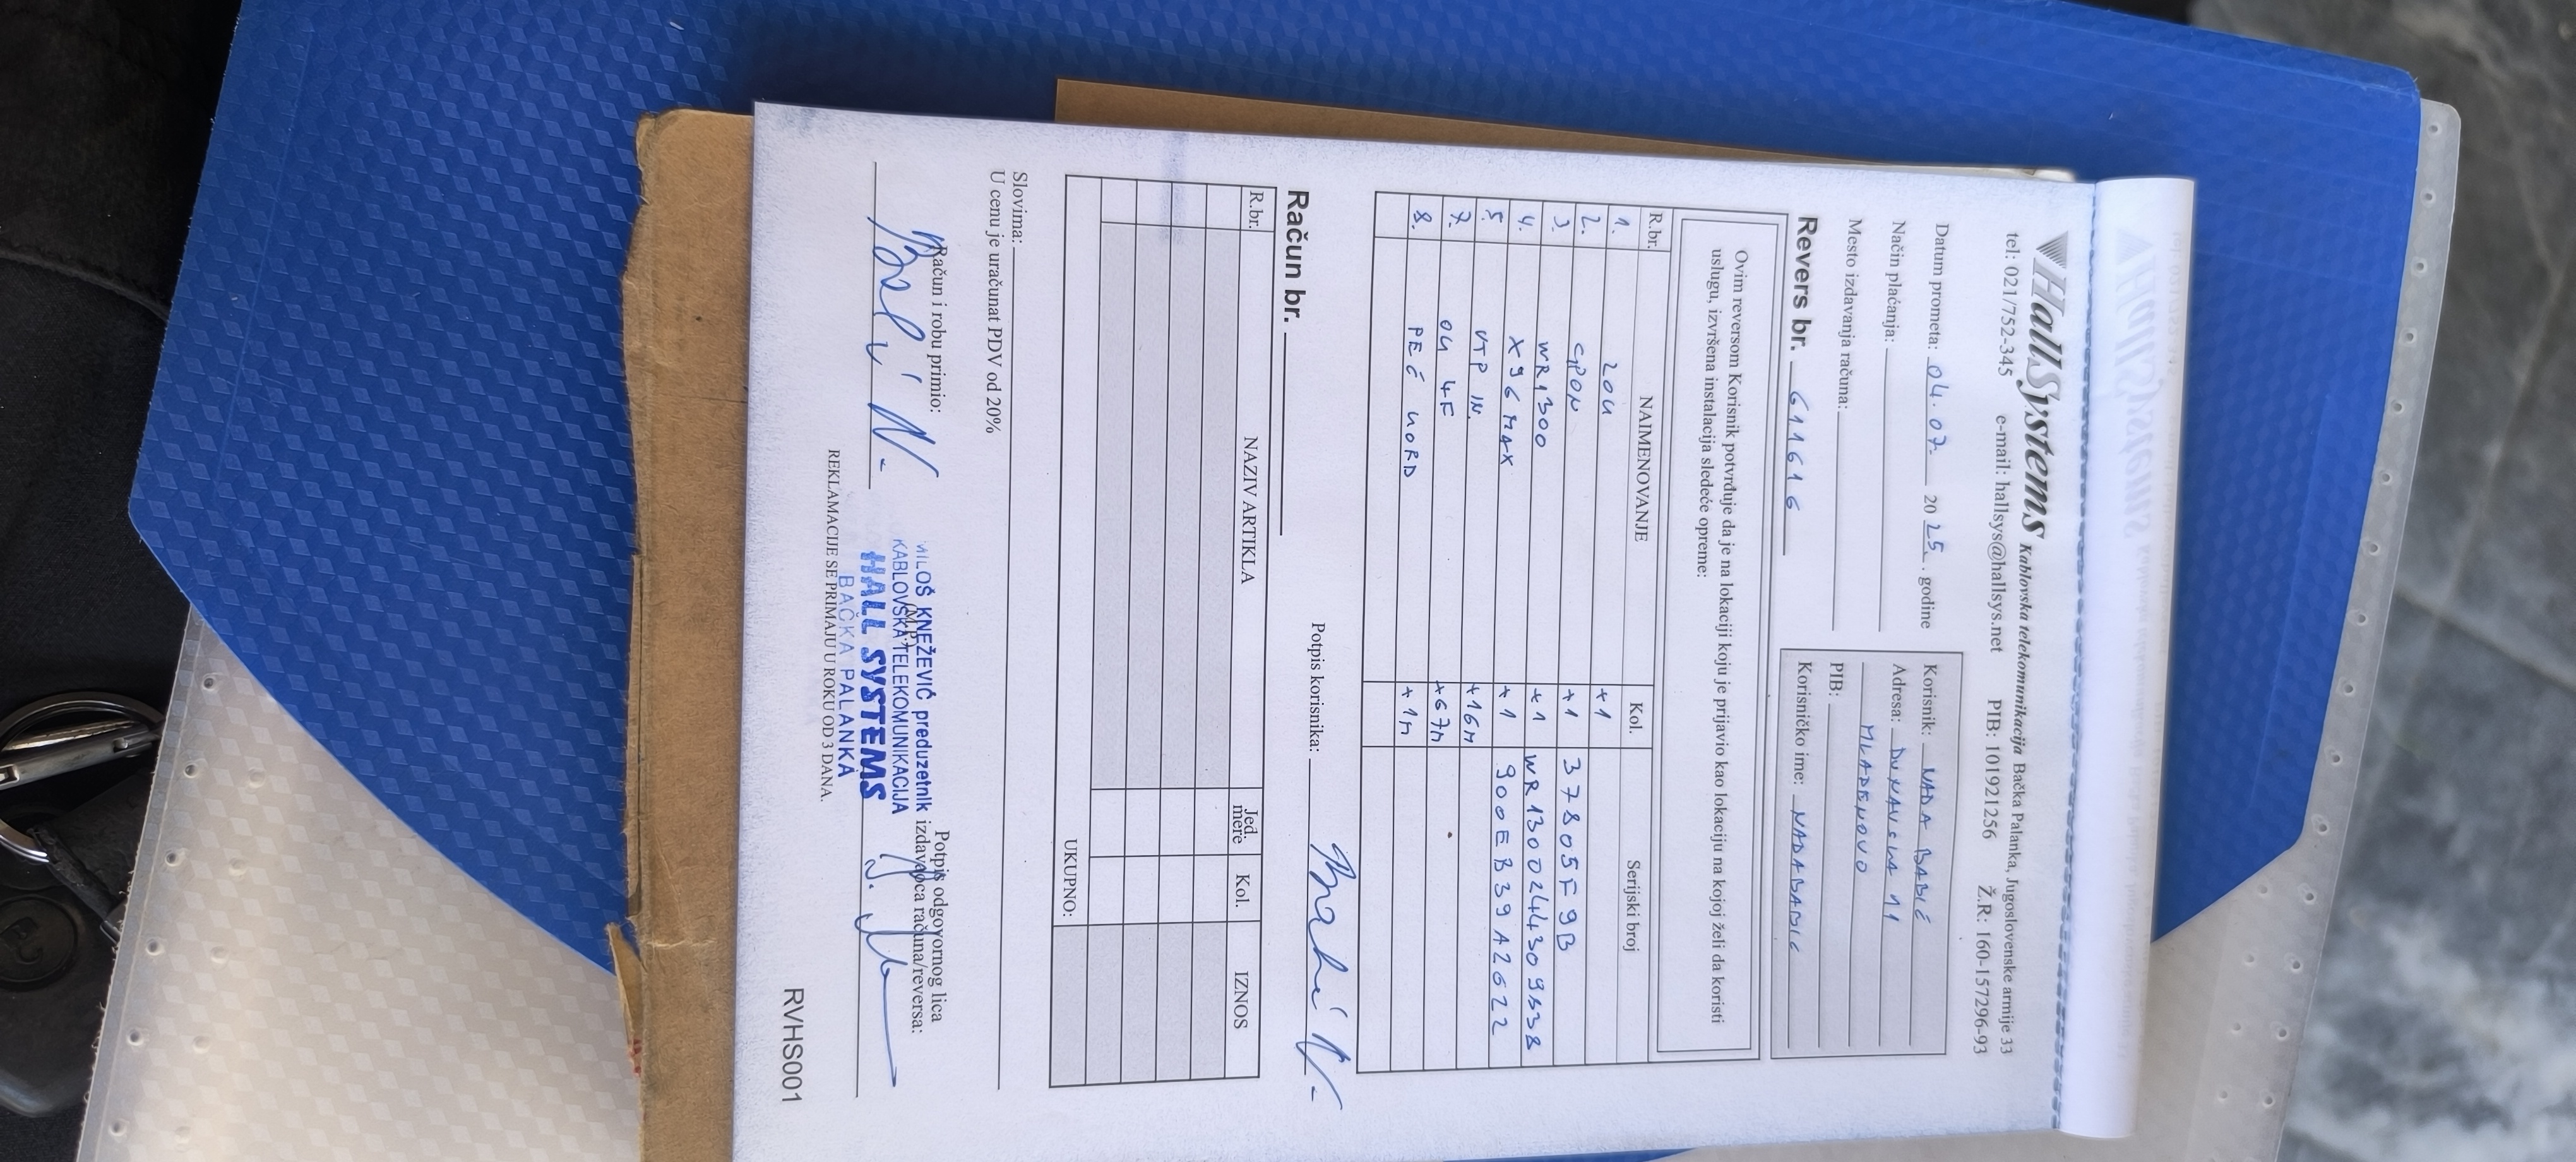 HallSystems Kablovska telekomunikacija Bačka Palanka, Jugoslovenske armije 33
tel: 021/752-345 e-mail: hallsys@hallsys.net PIB: 101921256 Ž.R: 160-157296-93
Datum prometa: 04.07. 2025. godine
Način plaćanja:
Mesto izdavanja računa:
Korisnik: NADA BABIĆ
Adresa: DUNAVSKA 11
MLADENOVO
PIB:
Korisničko ime: NADABABIC
Revers br. 611616
Ovim reversom Korisnik potvrđuje da je na lokaciji koju je prijavio kao lokaciju na kojoj želi da koristi
uslugu, izvršena instalacija sledeće opreme:
R.br. NAIMENOVANJE Kol. Serijski broj
1. ZOU +1
2. GPON +1 37805F9B
3. WR1300 +1 WR1300244309638
4. X96 MAX +1 900EB39A2622
5. UTP IN. +16M
7. OU 4F +67M
8. PEĆ NORD +1M
Potpis korisnika: Babić N.
Račun br.
R.br. NAZIV ARTIKLA Jed. mere Kol. IZNOS
UKUPNO:
Slovima:
U cenu je uračunat PDV od 20%
Račun i robu primio:
Babić N.
(M.P.)
MILOŠ KNEŽEVIĆ preduzetnik
KABLOVSKA TELEKOMUNIKACIJA
HALL SYSTEMS
BAČKA PALANKA
Potpis odgovornog lica
izdavaoca računa/reversa:
REKLAMACIJE SE PRIMAJU U ROKU OD 3 DANA.
RVHS001